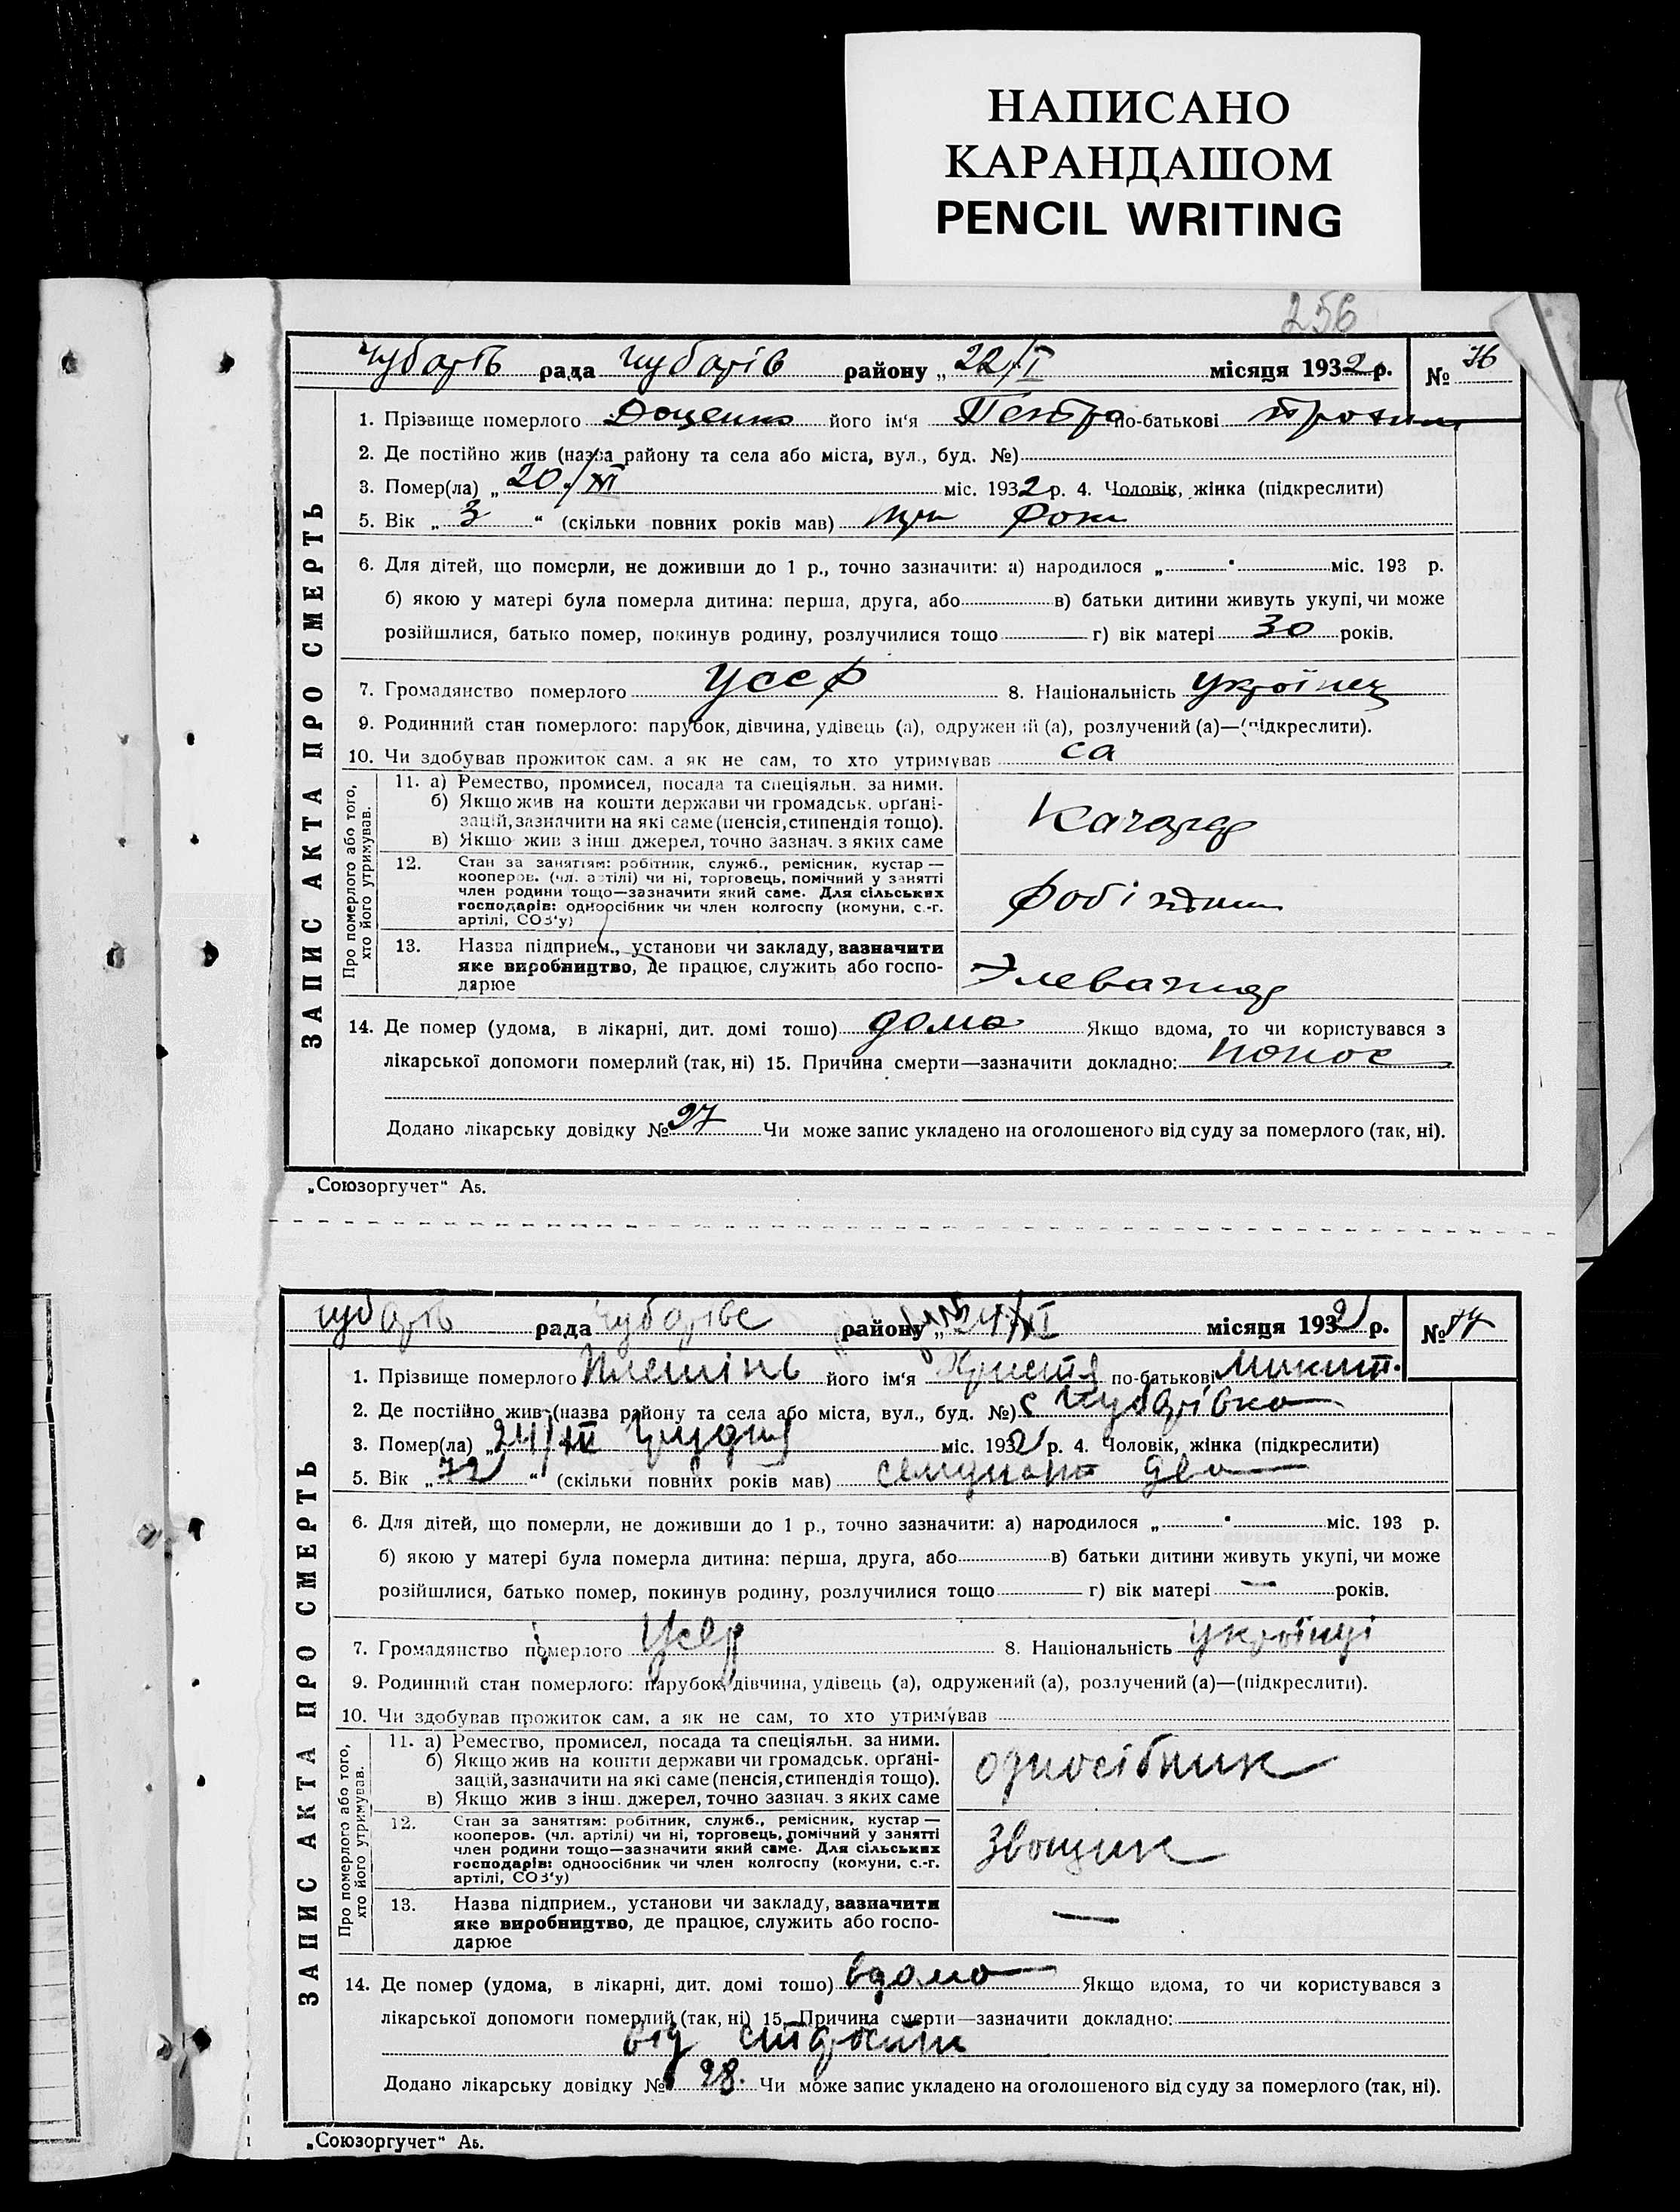 НАПИСАНО
КАРАНДАШОМ
PENCIL WRITING
256
Чубарів рада Чубарів району „ 22/I місяця 1932 р. № 76
ЗАПИС АКТА ПРО СМЕРТЬ
1. Прізвище померлого Доценко його ім'я Петро по-батькові
2. Де постійно жив (назва району та села або міста, вул., буд. №)
3. Помер(ла) „ 20/XI міс. 1932 р. 4. Чоловік, жінка (підкреслити)
5. Вік „ 3 “ (скільки повних років мав) три роки
6. Для дітей, що померли, не доживши до 1 р., точно зазначити: а) народилося „ “ міс. 193 р.
б) якою у матері була померла дитина: перша, друга, або в) батьки дитини живуть укупі, чи може
розійшлися, батько помер, покинув родину, розлучилися тощо г) вік матері 30 років.
7. Громадянство померлого УССР 8. Національність українец
9. Родинний стан померлого: парубок, дівчина, удівець (а), одружений (а), розлучений (а)—(підкреслити).
10. Чи здобував прожиток сам, а як не сам, то хто утримував са
Про померлого або того, хто його утримував.
11. а) Ремество, промисел, посада та спеціяльн. за ними.
б) Якщо жив на кошти держави чи громадськ. орґані-
зацій, зазначити на які саме (пенсія, стипендія тощо).
в) Якщо жив з інш. джерел, точно зазнач. з яких саме
Качагар
12. Стан за заняттям: робітник, служб., ремісник, кустар —
кооперов. (чл. артілі) чи ні, торговець, помічний у занятті
член родини тощо—зазначити який саме. Для сільських
господарів: одноосібник чи член колгоспу (комуни, с.-г.
артілі, СОЗ'у)
робітник
13. Назва підприєм., установи чи закладу, зазначити
яке виробництво, де працює, служить або госпо-
дарює
Элеватор
14. Де помер (удома, в лікарні, дит. домі тощо) дома Якщо вдома, то чи користувався з
лікарської допомоги померлий (так, ні) 15. Причина смерти—зазначити докладно: понос
Додано лікарську довідку № 27 Чи може запис укладено на оголошеного від суду за померлого (так, ні).
„Союзоргучет“ А5.
Чубарів рада Чубарівс району „ 24/XI місяця 1932 р. № 77
ЗАПИС АКТА ПРО СМЕРТЬ
1. Прізвище померлого Плешінь його ім'я Христя по-батькові Микит.
2. Де постійно жив (назва району та села або міста, вул., буд. №) с Чубарівка
3. Помер(ла) „ 24/ грудня міс. 1932 р. 4. Чоловік, жінка (підкреслити)
5. Вік „ 72 “ (скільки повних років мав) семдесят два
6. Для дітей, що померли, не доживши до 1 р., точно зазначити: а) народилося „ “ міс. 193 р.
б) якою у матері була померла дитина: перша, друга, або в) батьки дитини живуть укупі, чи може
розійшлися, батько помер, покинув родину, розлучилися тощо г) вік матері — років.
7. Громадянство померлого Усср 8. Національність українці
9. Родинний стан померлого: парубок, дівчина, удівець (а), одружений (а), розлучений (а)—(підкреслити).
10. Чи здобував прожиток сам, а як не сам, то хто утримував
Про померлого або того, хто його утримував.
11. а) Ремество, промисел, посада та спеціяльн. за ними.
б) Якщо жив на кошти держави чи громадськ. орґані-
зацій, зазначити на які саме (пенсія, стипендія тощо).
в) Якщо жив з інш. джерел, точно зазнач. з яких саме
односібник
12. Стан за заняттям: робітник, служб., ремісник, кустар —
кооперов. (чл. артілі) чи ні, торговець, помічний у занятті
член родини тощо—зазначити який саме. Для сільських
господарів: одноосібник чи член колгоспу (комуни, с.-г.
артілі, СОЗ'у)
Звощик
13. Назва підприєм., установи чи закладу, зазначити
яке виробництво, де працює, служить або госпо-
дарює
—
14. Де помер (удома, в лікарні, дит. домі тощо) вдома Якщо вдома, то чи користувався з
лікарської допомоги померлий (так, ні) 15. Причина смерти—зазначити докладно:
від старости
Додано лікарську довідку № 28. Чи може запис укладено на оголошеного від суду за померлого (так, ні).
„Союзоргучет“ А5.